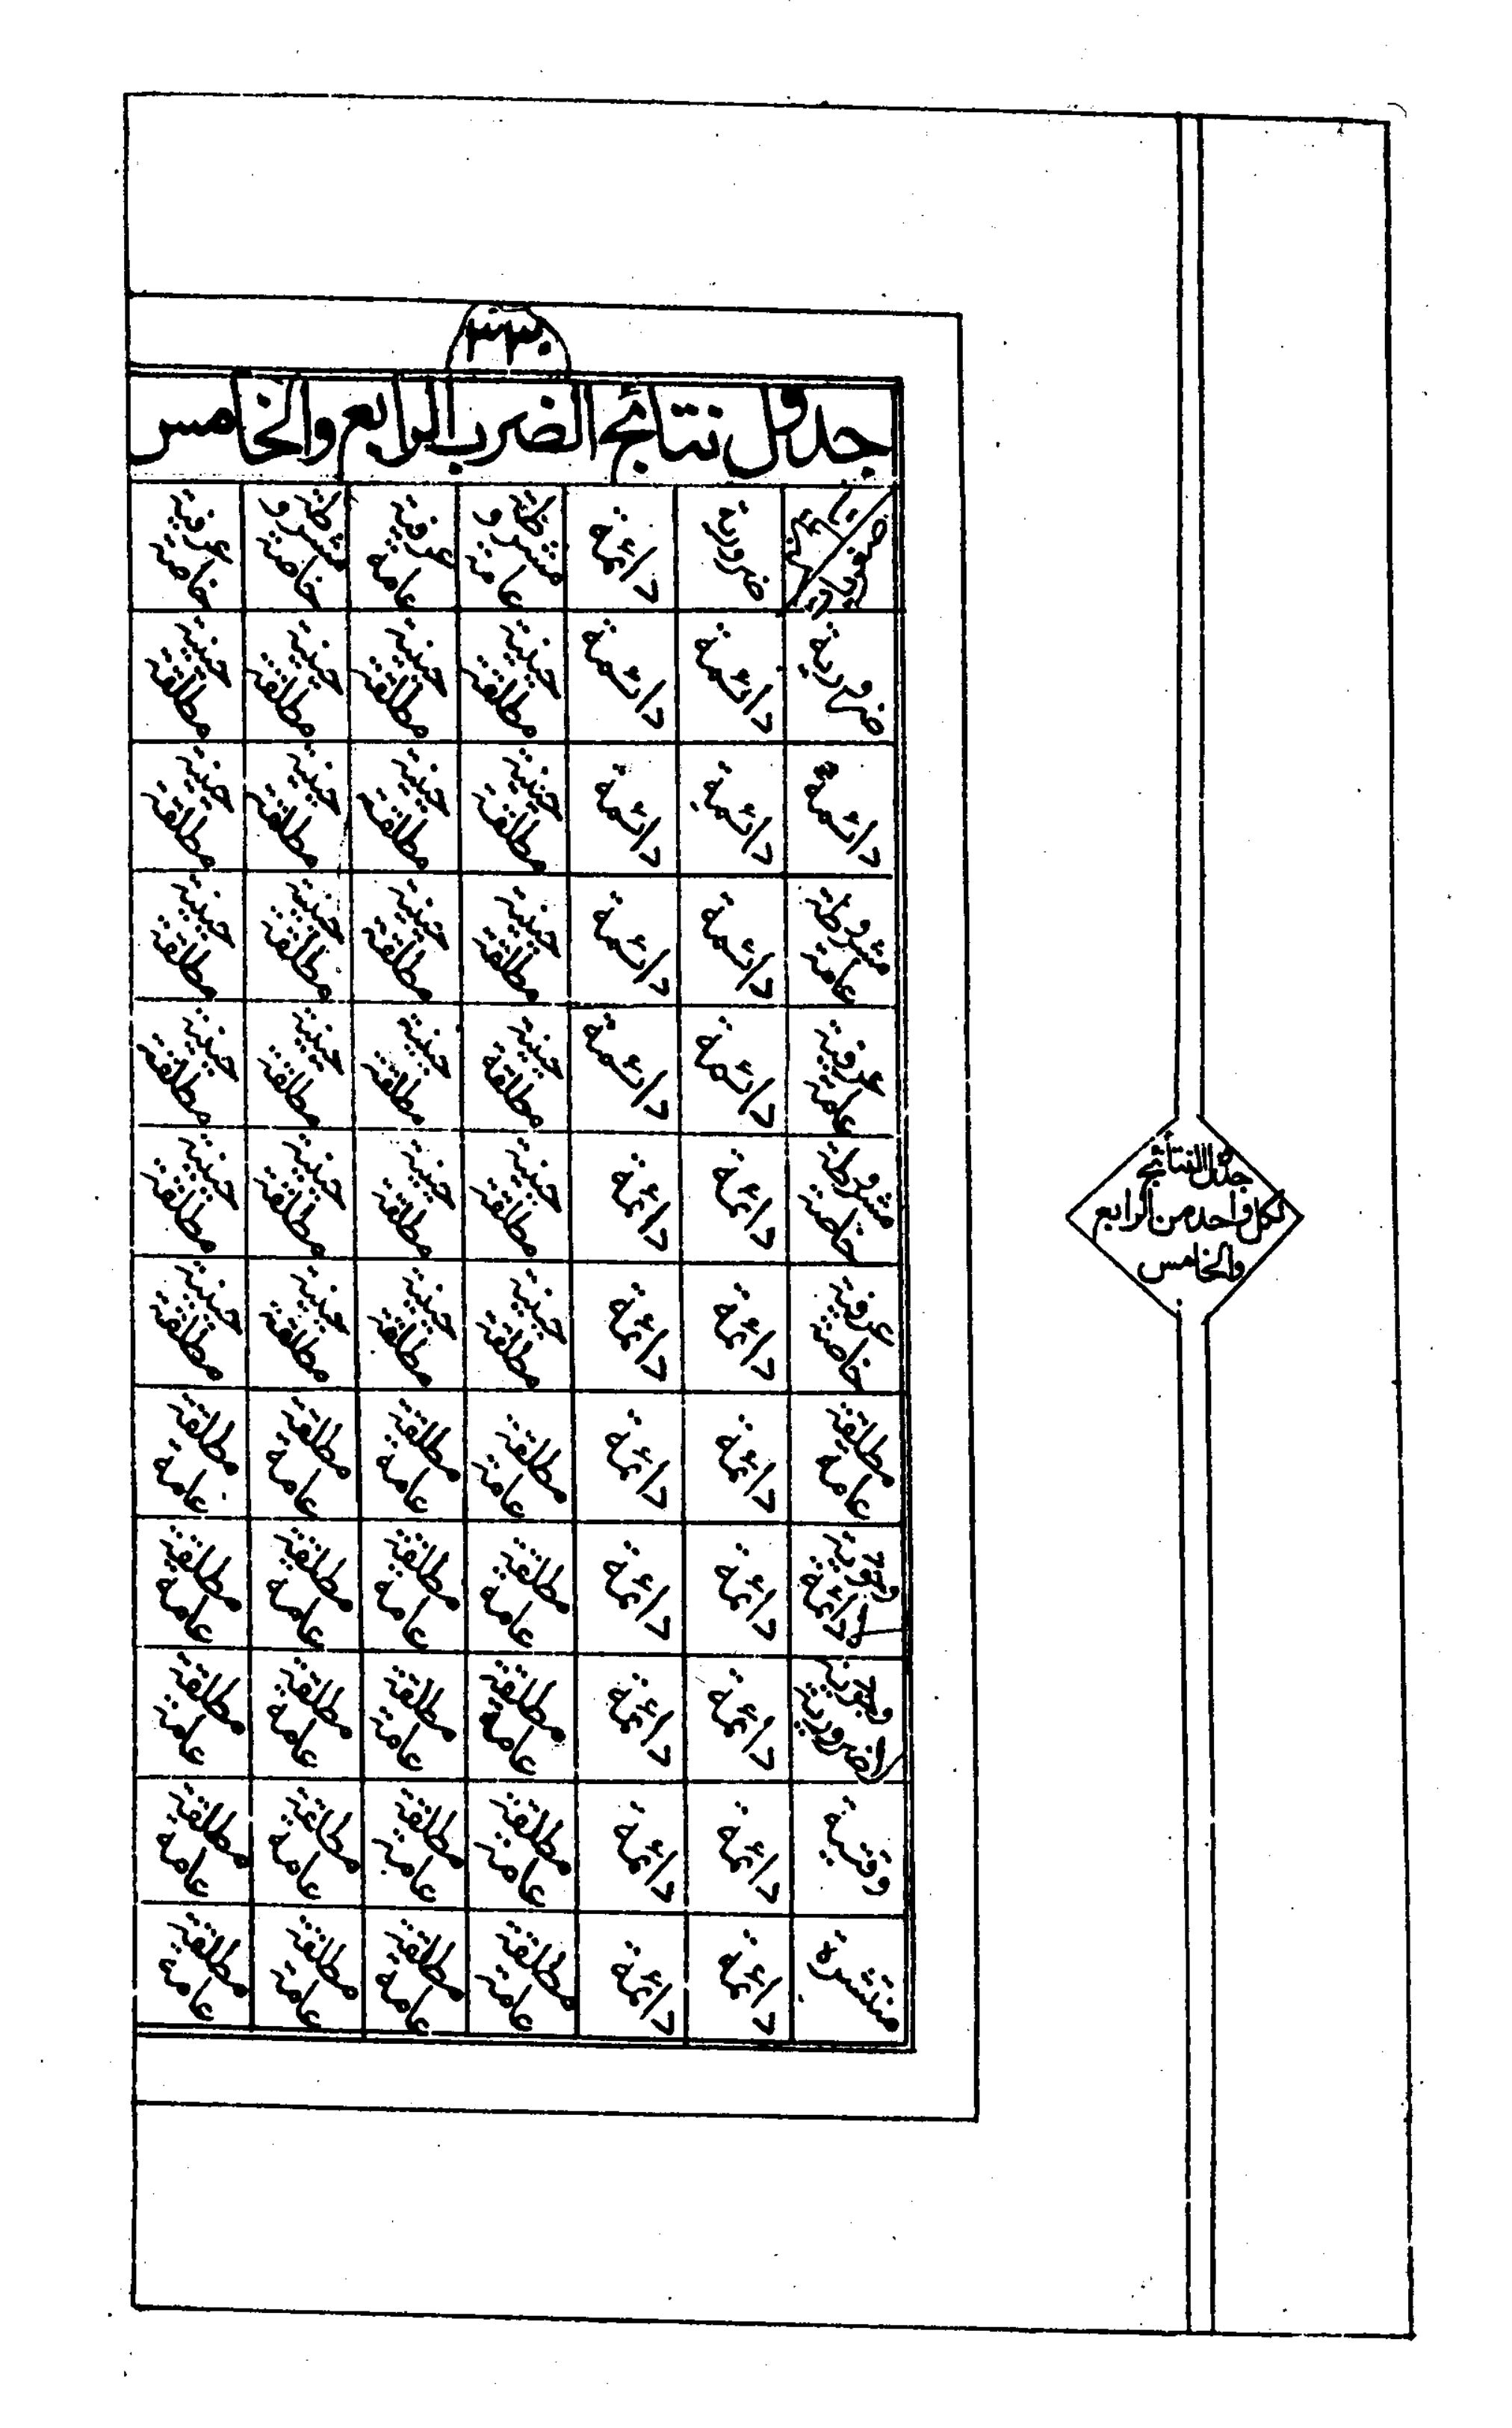 ٣٣٠
جدول نتائج الضرب الرابع والخامس
ضرورية دائمة مشروطة عامة عرفية عامة مشروطة خاصة عرفية خاصة
ضرورية دائمة دائمة حينية مطلقة حينية مطلقة حينية مطلقة حينية مطلقة
دائمة دائمة دائمة حينية مطلقة حينية مطلقة حينية مطلقة حينية مطلقة
مشروطة عامة دائمة دائمة حينية مطلقة حينية مطلقة حينية مطلقة حينية مطلقة
عرفية عامة دائمة دائمة حينية مطلقة حينية مطلقة حينية مطلقة حينية مطلقة
مشروطة خاصة دائمة دائمة حينية مطلقة حينية مطلقة حينية مطلقة حينية مطلقة
عرفية خاصة دائمة دائمة حينية مطلقة حينية مطلقة حينية مطلقة حينية مطلقة
مطلقة عامة دائمة دائمة مطلقة عامة مطلقة عامة مطلقة عامة مطلقة عامة
وجودية لادائمة دائمة دائمة مطلقة عامة مطلقة عامة مطلقة عامة مطلقة عامة
وجودية لاضرورية دائمة دائمة مطلقة عامة مطلقة عامة مطلقة عامة مطلقة عامة
وقتية دائمة دائمة مطلقة عامة مطلقة عامة مطلقة عامة مطلقة عامة
منتشرة دائمة دائمة مطلقة عامة مطلقة عامة مطلقة عامة مطلقة عامة
جدول النتائج
لكل واحد من الرابع
والخامس